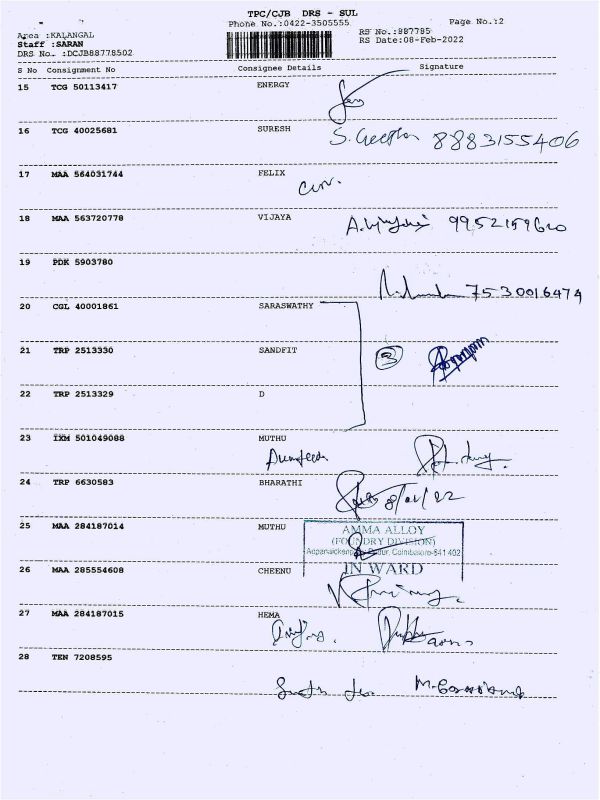 TPC/CJB DRS - SUL
Phone No.:0422-3505555 Page No.:2
Area :KALANGAL RS No.:887795
Staff :SARAN RS Date:08-Feb-2022
DRS No. :DCJB88778502
S No Consignment No Consignee Details Signature
15 TCG 50113417 ENERGY
16 TCG 40025681 SURESH 8883155406
17 MAA 564031744 FELIX
18 MAA 563720778 VIJAYA 9952159600
19 PDK 5903780 7530016474
20 CGL 40001861 SARASWATHY
21 TRP 2513330 SANDFIT 3
22 TRP 2513329 D
23 IXM 501049088 MUTHU
24 TRP 6630583 BHARATHI
25 MAA 284187014 MUTHU
AMMA ALLOY
(FOUNDRY DIVISION)
Coimbatore-641 402
IN WARD
26 MAA 285554608 CHEENU
27 MAA 284187015 HEMA
28 TEN 7208595